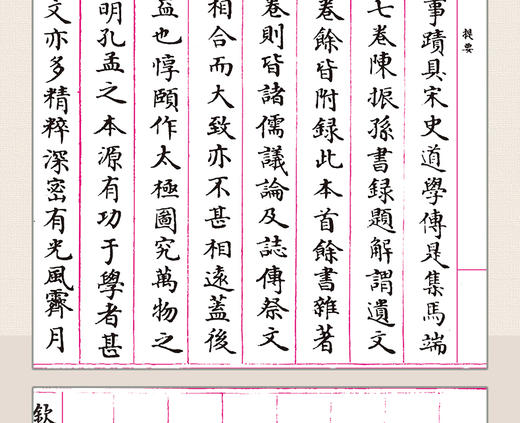 提要
事蹟具宋史道學傳是集馬端
七卷陳振孫書録題解謂遺文
卷餘皆附録此本首餘書雜著
卷則皆諸儒議論及誌傳祭文
相合而大致亦不甚相逺葢後
益也惇頤作太極圖究萬物之
明孔孟之本源有功于學者甚
文亦多精粹深密有光風霽月
欽